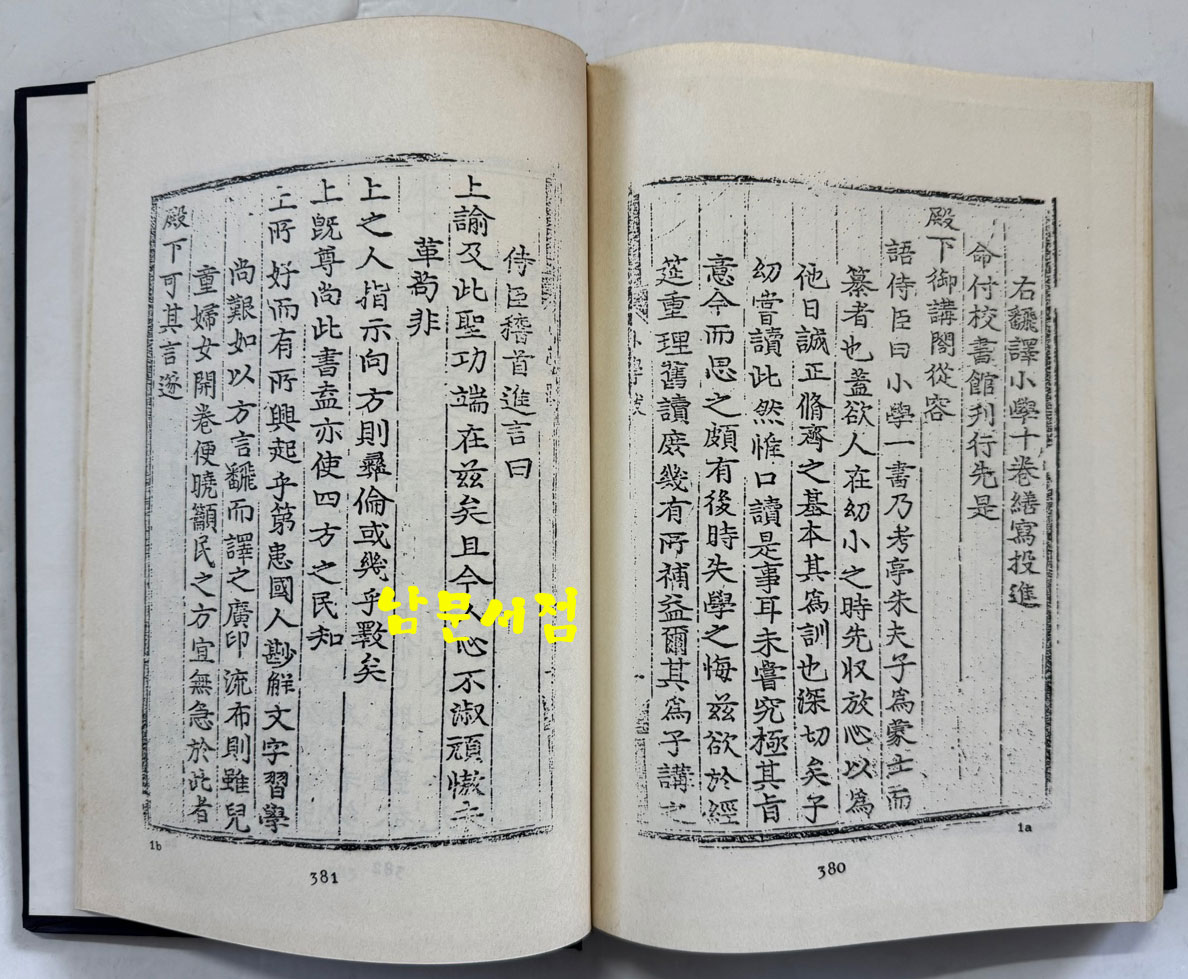 右飜譯小學十卷繕寫投進
命付校書館刊行先是
殿下御講閤從容
語侍臣曰小學一書乃考亭朱夫子爲蒙士而
纂者也蓋欲人在幼小之時先収放心以爲
他日誠正脩齊之基本其爲訓也深切矣予
幼嘗讀此然惟口讀是事耳未嘗究極其旨
意今而思之頗有後時失學之悔玆欲於經
筵重理舊讀庶幾有所補益爾其爲予講之
1a
380
侍臣稽首進言曰
上諭及此聖功端在玆矣且今人心不淑頑
革苟非
上之人指示向方則彝倫或幾乎斁矣
上旣尊尚此書盍亦使四方之民知
上所好而有所興起乎第患國人尠解文字習學
尚艱如以方言飜而譯之廣印流布則雖兒
童婦女開卷便曉籲民之方宜無急於此者
殿下可其言遂
1b
381
남문서점